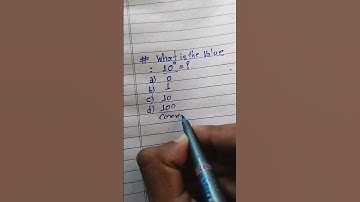 # What is the Value
: 10⁰ = ?
a) 0
b) 1
c) 10
d) 100